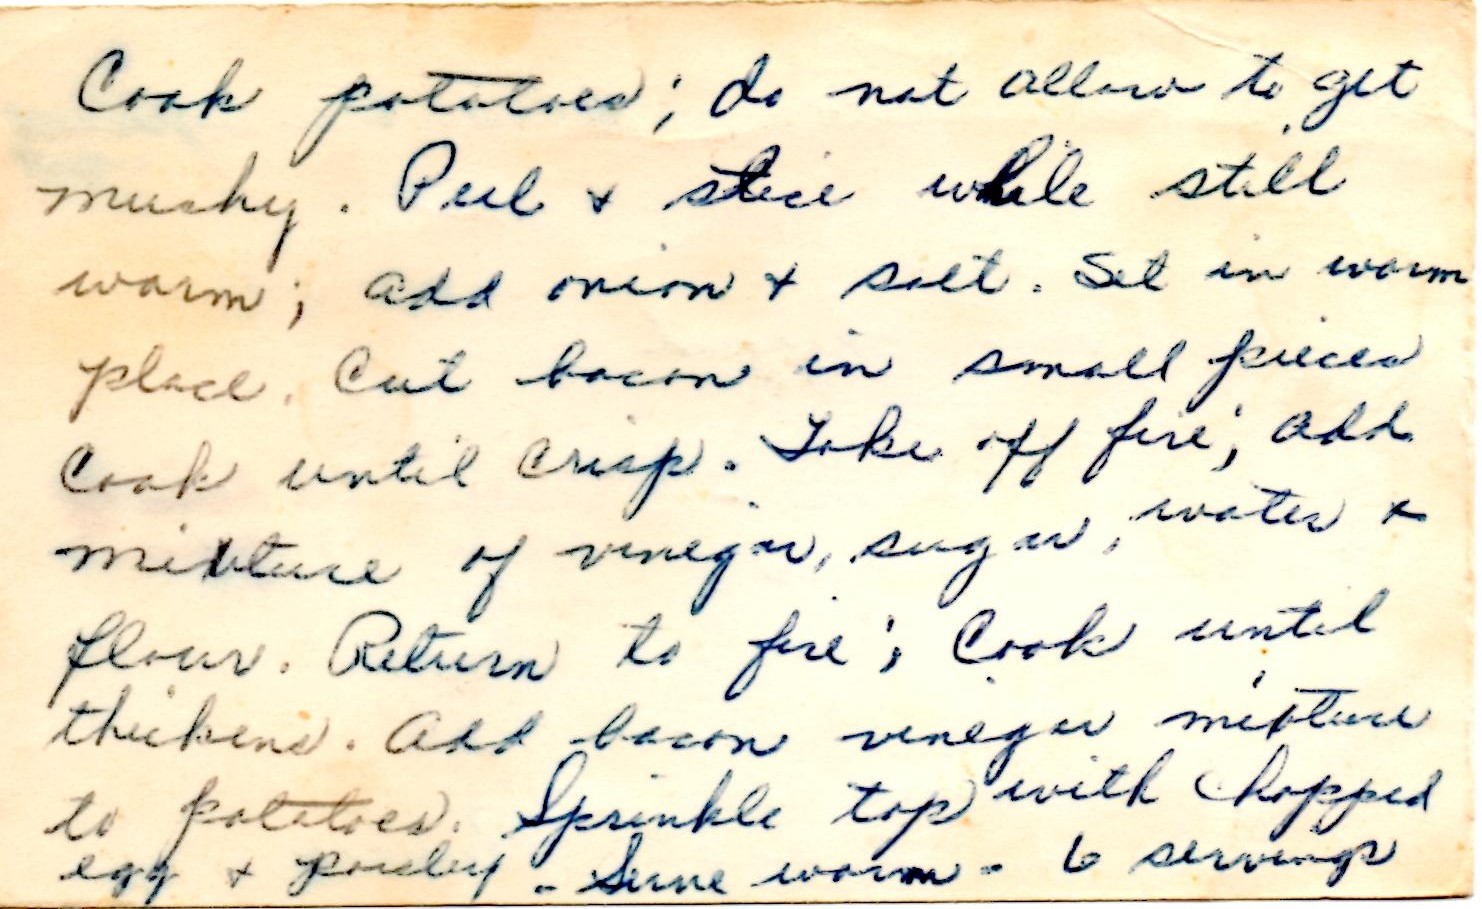 Cook potatoes; do not allow to get
mushy. Peel & slice while still
warm; add onion & salt. Set in warm
place. Cut bacon in small pieces
Cook until crisp. Take off fire; add
mixture of vinegar, sugar, water &
flour. Return to fire; Cook until
thickens. Add bacon vinegar mixture
to potatoes. Sprinkle top with chopped
egg & parsley - Serve warm - 6 servings